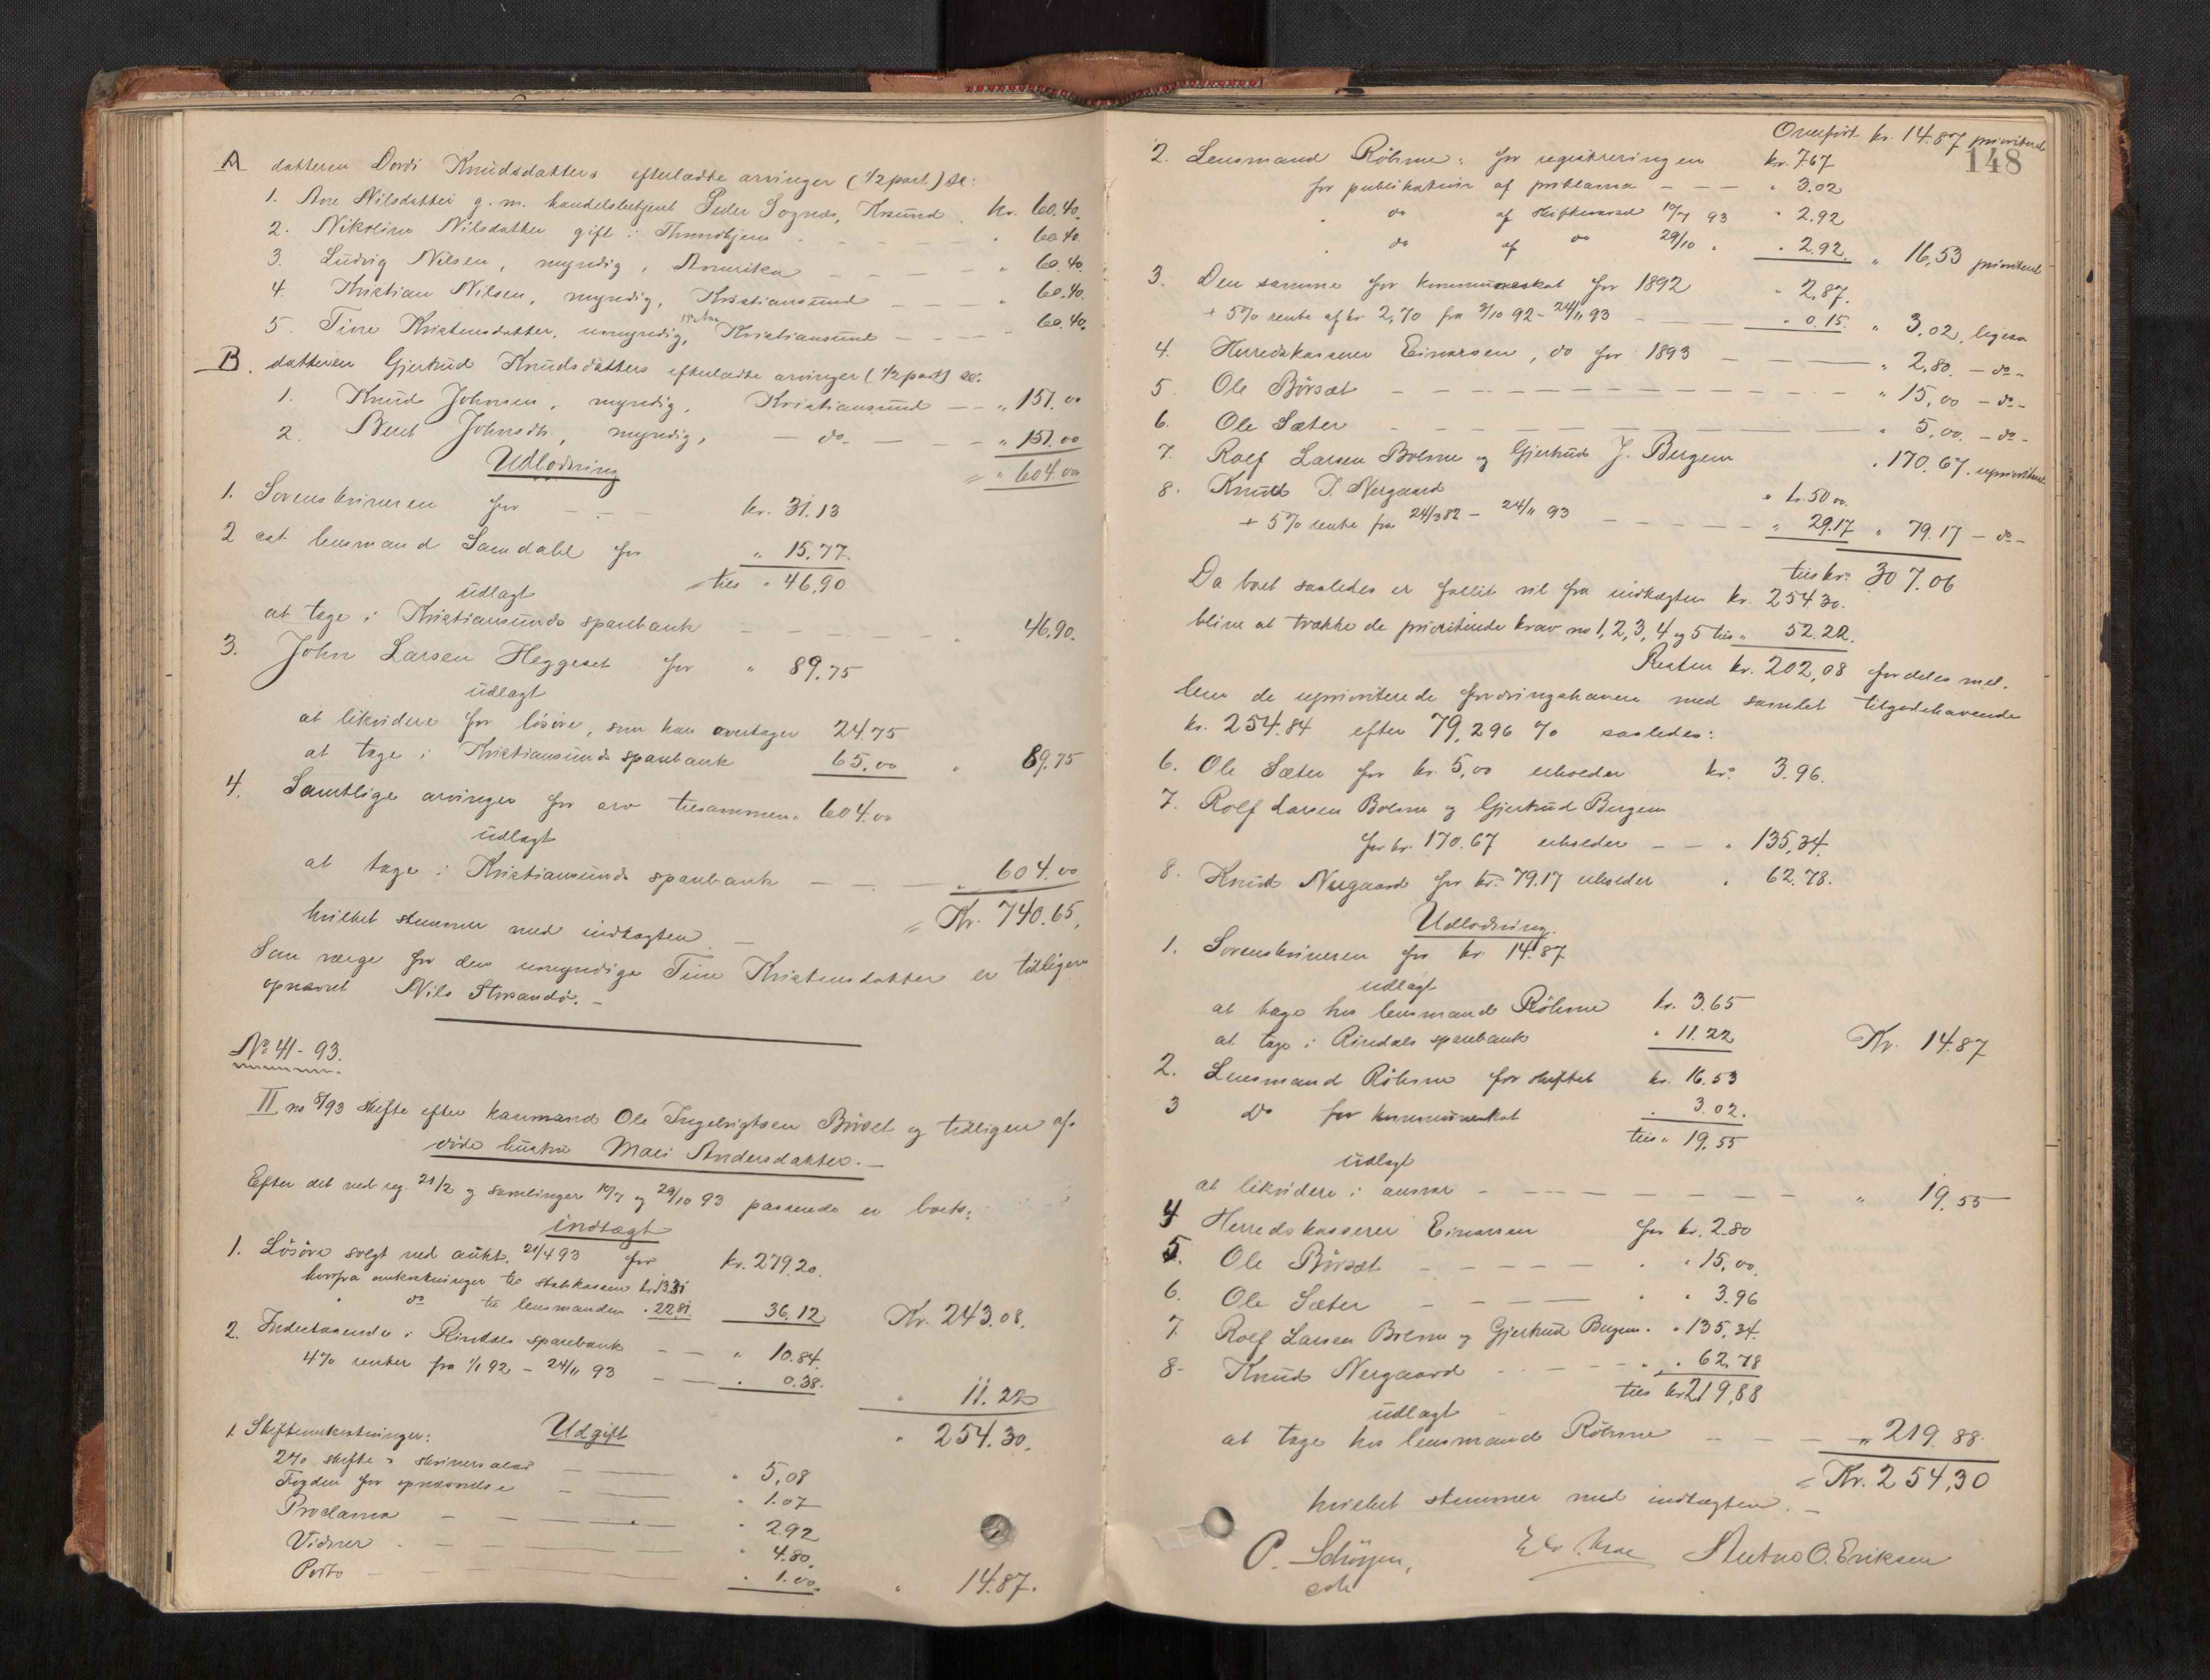 A datteren Dordi Knudsdatters efterladte arvinger (1/2 part) sc:
1. Ane Nilsdatter g. m. handelsbetjent Peder Sognæs, Krsund. kr. 60.40.
2. Nikoline Nilsdatter gift i Throndhjem - - - - " 60.40.
3. Ludvig Nilsen, myndig, Amerika - - - - " 60.40.
4. Kristian Nilsen, myndig, Kristiansund - - - " 60.40.
5. Tine Kristensdatter, umyndig, Kristiansund - - - - 60.40.
B. datteren Gjertrud Knudsdatters efterladte arvinger (1/2 part) sc:
1. Knud Johnsen, myndig, Kristiansund - - " 151.00
2. Beret Johnsdtr., myndig, - do - - - - " 151.00
= " 604.00
Udlodning
1. Sorenskriveren for - - - kr. 31.13
2 cst. lensmand Sandahl for " 15.77.
tils " 46,90
udlagt
at tage i Kristiansunds sparebank - - - - - " 46.90.
3. John Larsen Heggeset for " 89.75
udlagt
at likvidere for løsøre, som han overtager 24.75
at tage i Kristiansunds sparebank 65.00 " 89.75
4. Samtlige arvinger for arv tilsammen " 604.00
udlagt
at tage i Kristiansunds sparebank - - - " 604.00
hvilket stemmer med indtægten. - = Kr. 740.65.
Som værge for den umyndige Tine Kristensdatter er tidligere
opnævnt Nils Strandø. -
No 41-93.
II no 8/93 skifte efter kaarmand Ole Ingebrigtsen Børset og tidligere af-
døde hustru Mari Andersdatter. -
Efter det ved reg. 21/2 og samlinger 10/7 og 29/10 93 passerede er boets:
indtægt
1. Løsøre solgt ved aukt. 21/4 93 for kr. 279.20.
herfra omkostninger til statskassen kr 13.31
" do til lensmanden " 22.81 36.12 Kr. 243.08.
2. Indestaaende i Rindals sparebank - - " 10.84.
4% renter fra 1/1 92 - 24/11 93 - - " 0.38. " 11.22
" 254.30.
Udgift
1. Skifteomkostninger:
2% skifte- skriversalær - - " 5.08
Fogden for opnævnelse - - " 1.07
Proclama - - - - " 2.92
Vidner - - - - " 4.80.
Porto - - - " 1.00. " 14.87.
148
Overført kr. 14.87 prioriteret
2. Lensmand Röhme: for registreringen kr. 7.67
for publikation af proklama - - - " 3.02
" do af skiftesamml 10/7 93 " 2.92
" do af do 29/10 " " 2.92. " 16,53 prioriteret
3. Den samme for kommuneskat for 1892 " 2.87.
+ 5% rente af kr 2,70 fra 3/10 92 - 24/11 93 - - " 0.15. " 3.02. ligesaa
4. Herredskasserer Einarsen, do for 1893 - - - " 2,80. - do -
5 Ole Börsæt - - - - - - - " 15,00 - do -
6. Ole Sæter - - - - - - " 5,00. - do -
7. Rolf Larsen Bolme og Gjertrud J. Bergem " 170.67. uprioriteret
8. Knud I. Nergaard " kr. 50.00.
+ 5% rente fra 24/3 82 - 24/11 93 - - - - " 29.17 " 79.17 - do -
tils kr. 307.06
Da boet saaledes er fallit vil fra indtægten kr. 254.30.
blive at trække de prioriterede krav no 1, 2, 3, 4 og 5 tils " 52.22.
Resten kr. 202,08 fordeles mel-
lem de uprioriterede fordringshavere med samlet tilgodehavende
kr. 254.84 efter 79,296 % saaledes:
6. Ole Sæter for kr. 5,00 erholder kr. 3.96.
7. Rolf Larsen Bolme og Gjertrud Bergem
for kr. 170.67 erholder - - " 135,34.
8. Knud Nergaard for kr. 79.17 erholder " 62.78.
Udlodning.
1. Sorenskriveren for kr 14.87
udlagt
at tage hos lensmand Röhme kr. 3.65
at tage i Rindals sparebank " 11.22 Kr. 14.87
2. Lensmand Röhme for skiftet kr. 16.53
3 do for kommuneskat " 3.02.
tils " 19,55
udlagt
at likvidere i ansvar - - - - - - - " 19,55
4 Herredskasserer Einarsen for kr. 2.80
5. Ole Börsæt - - - - - " " 15,00.
6. Ole Sæter - - - - " " 3.96
7. Rolf Larsen Bolme og Gjertrud Bergem " " 135,34.
8- Knud Nergaard - - - - " " 62,78
tils kr 219,88
udlagt
at tage hos lensmand Röhme - - - - " 219.88
= Kr. 254,30
hvilket stemmer med indtægten. -
P. Schiøyen,
Antno O. Eriksen